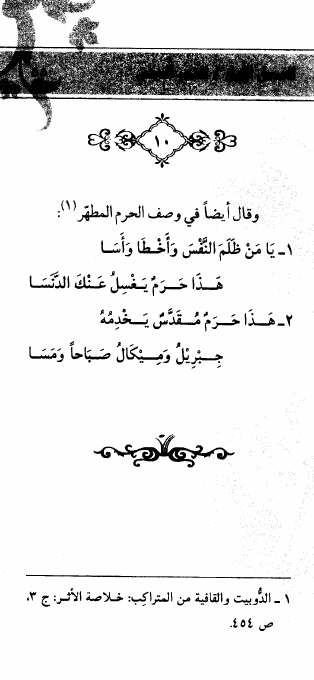 ١٠
وقال أيضاً في وصف الحرم المطهّر(١):
١ـ يَا مَنْ ظَلَمَ النَّفْسَ وَأَخْطَا وَأَسَا
هَـذَا حَـرَمٌ يَـغْسِلُ عَنْكَ الدَّنَسَا
٢ـ هَـذَا حَـرَمٌ مُـقَدَّسٌ يَـخْدِمُهُ
جِـبْرِيْلُ وَمِـيْكَالُ صَـبَاحاً وَمَسَـا
١ ـ الدُّوبيت والقافية من المتراكِب: خـلاصة الأثـر: ج ٣،
ص ٤٥٤.